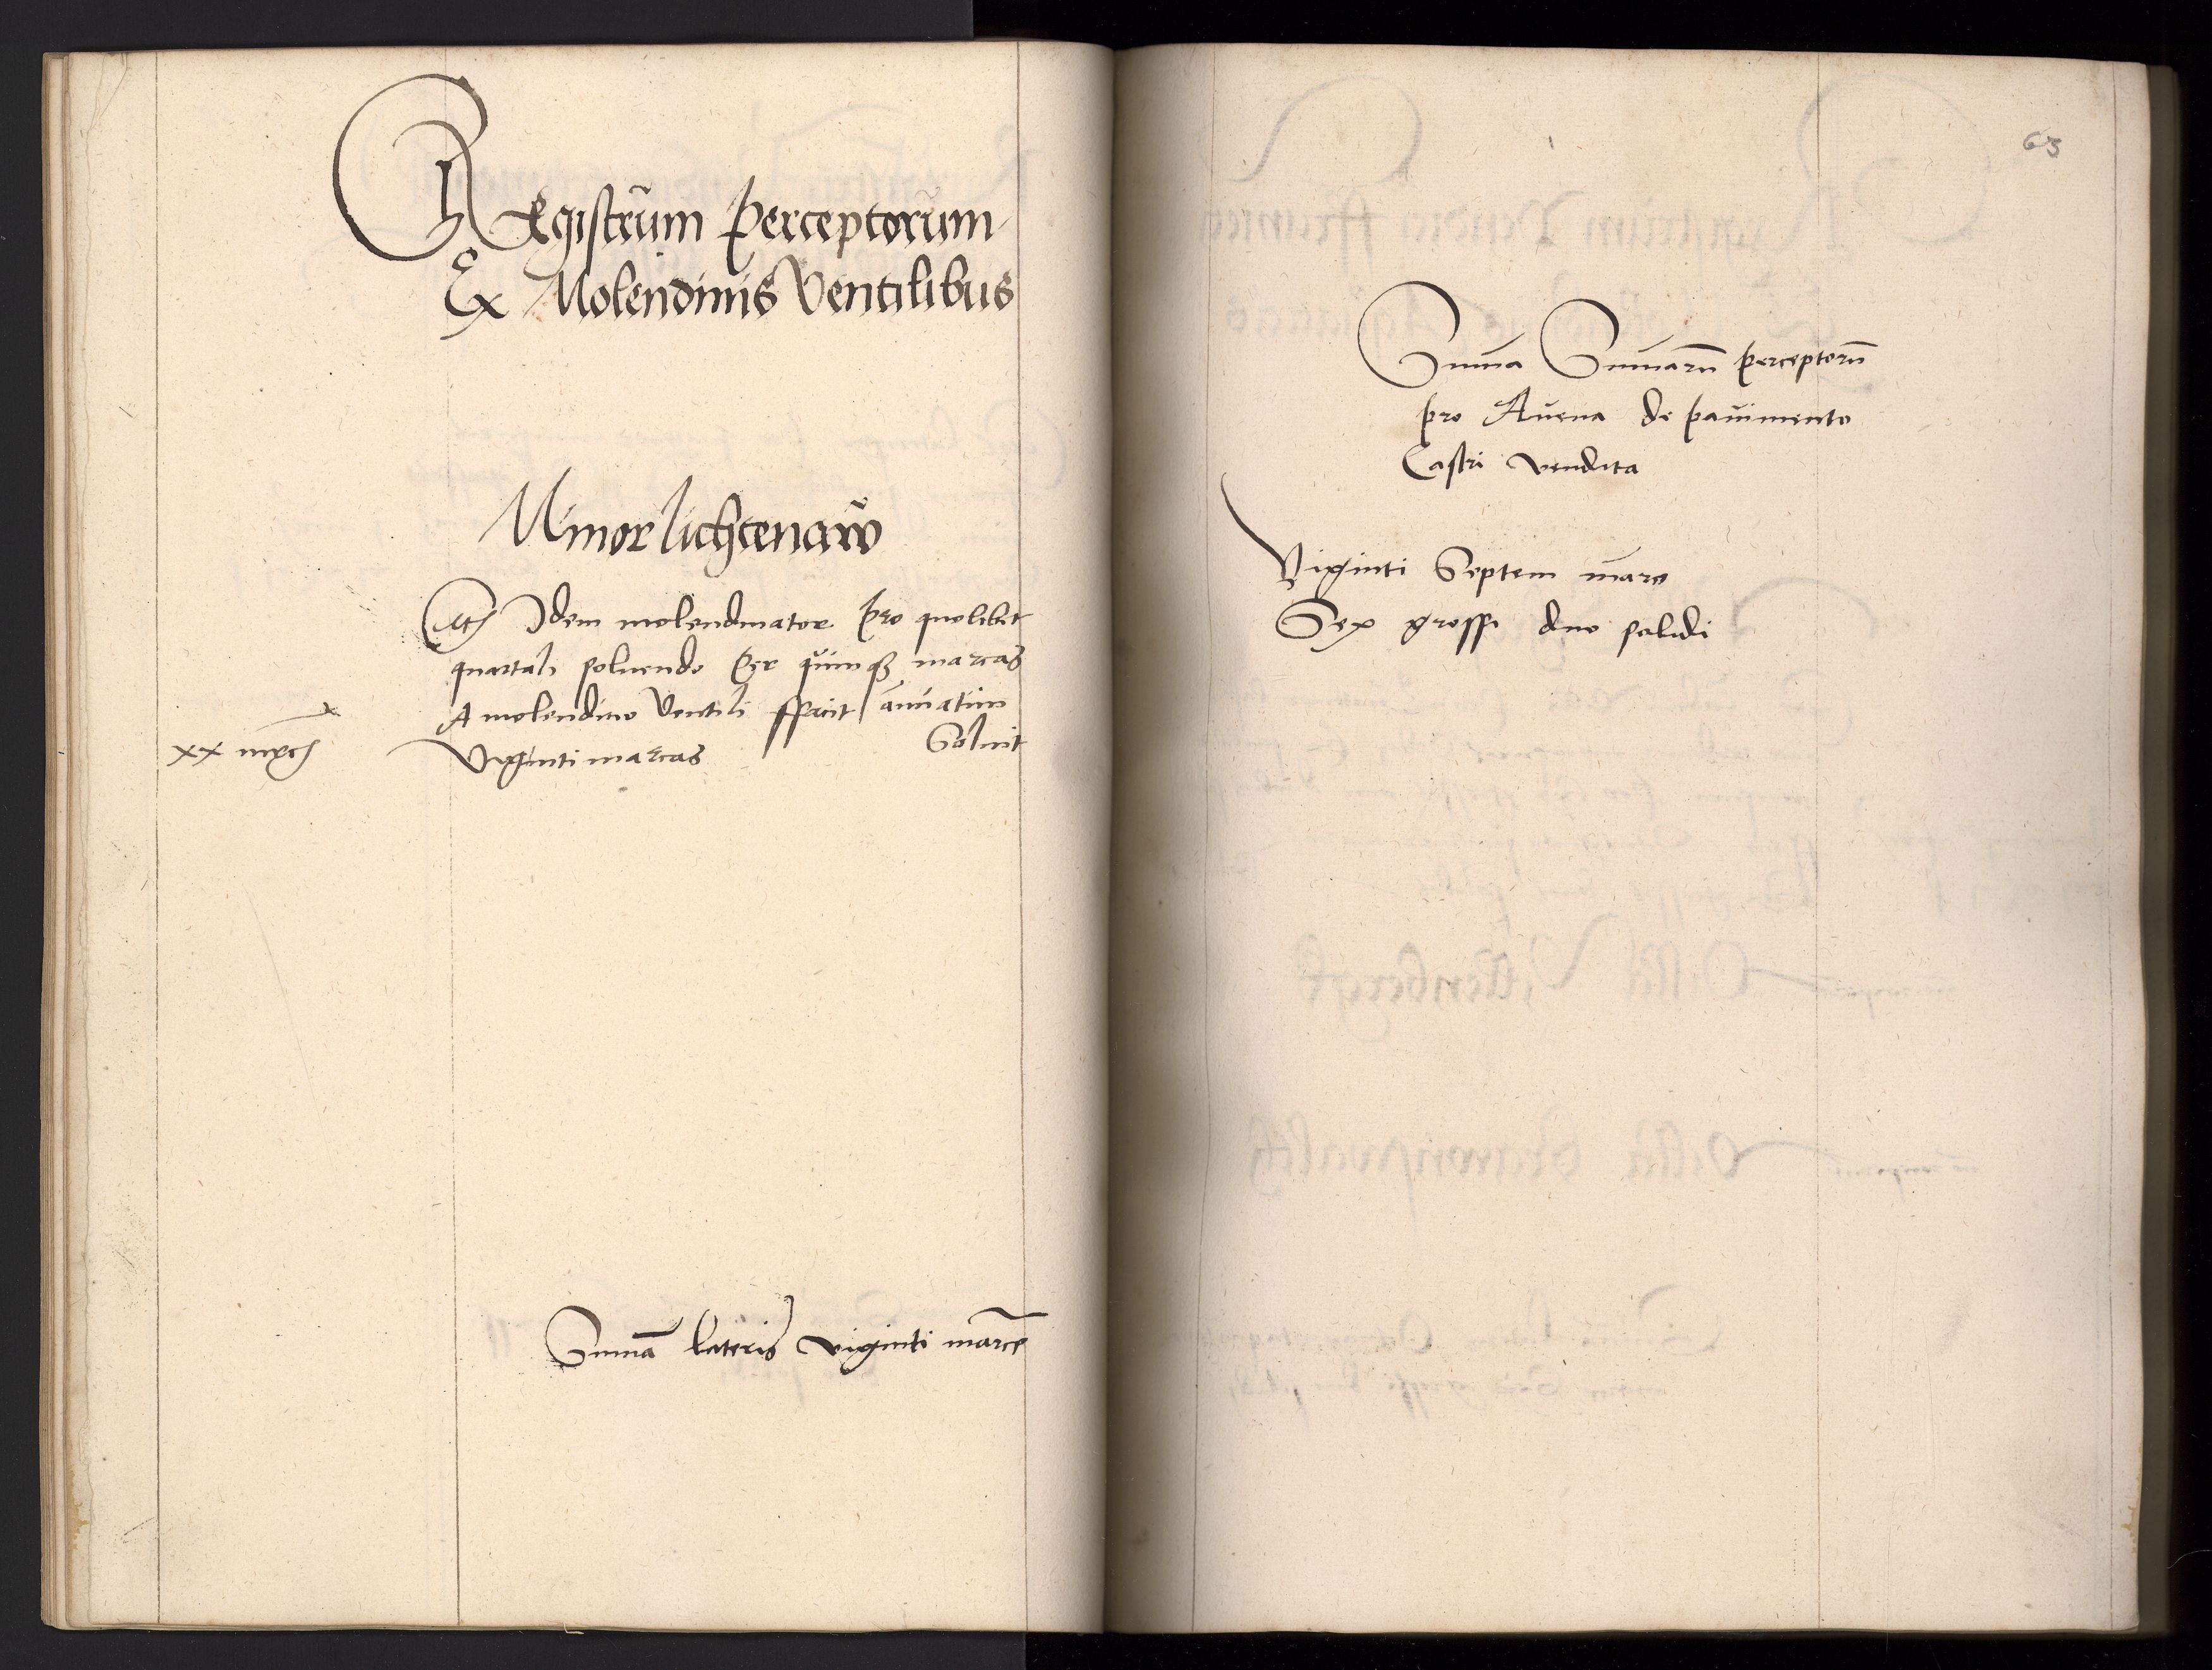 Registrum perceptorum
Ex Molendinis Ventilibus
Minor lichtenaw
Idem molendinator pro quolibet
quartali soluendo per quinqz marcas
A molendino Ventili ffacit annuatim
Soluit
xx mrc
Viginti marcas
Suma lateris viginti marce
63
Suma Sumarum perceptorum
pro Auena de pauimento
Castri vendita
Viginti Septem marce
Sex grossi duo solidi